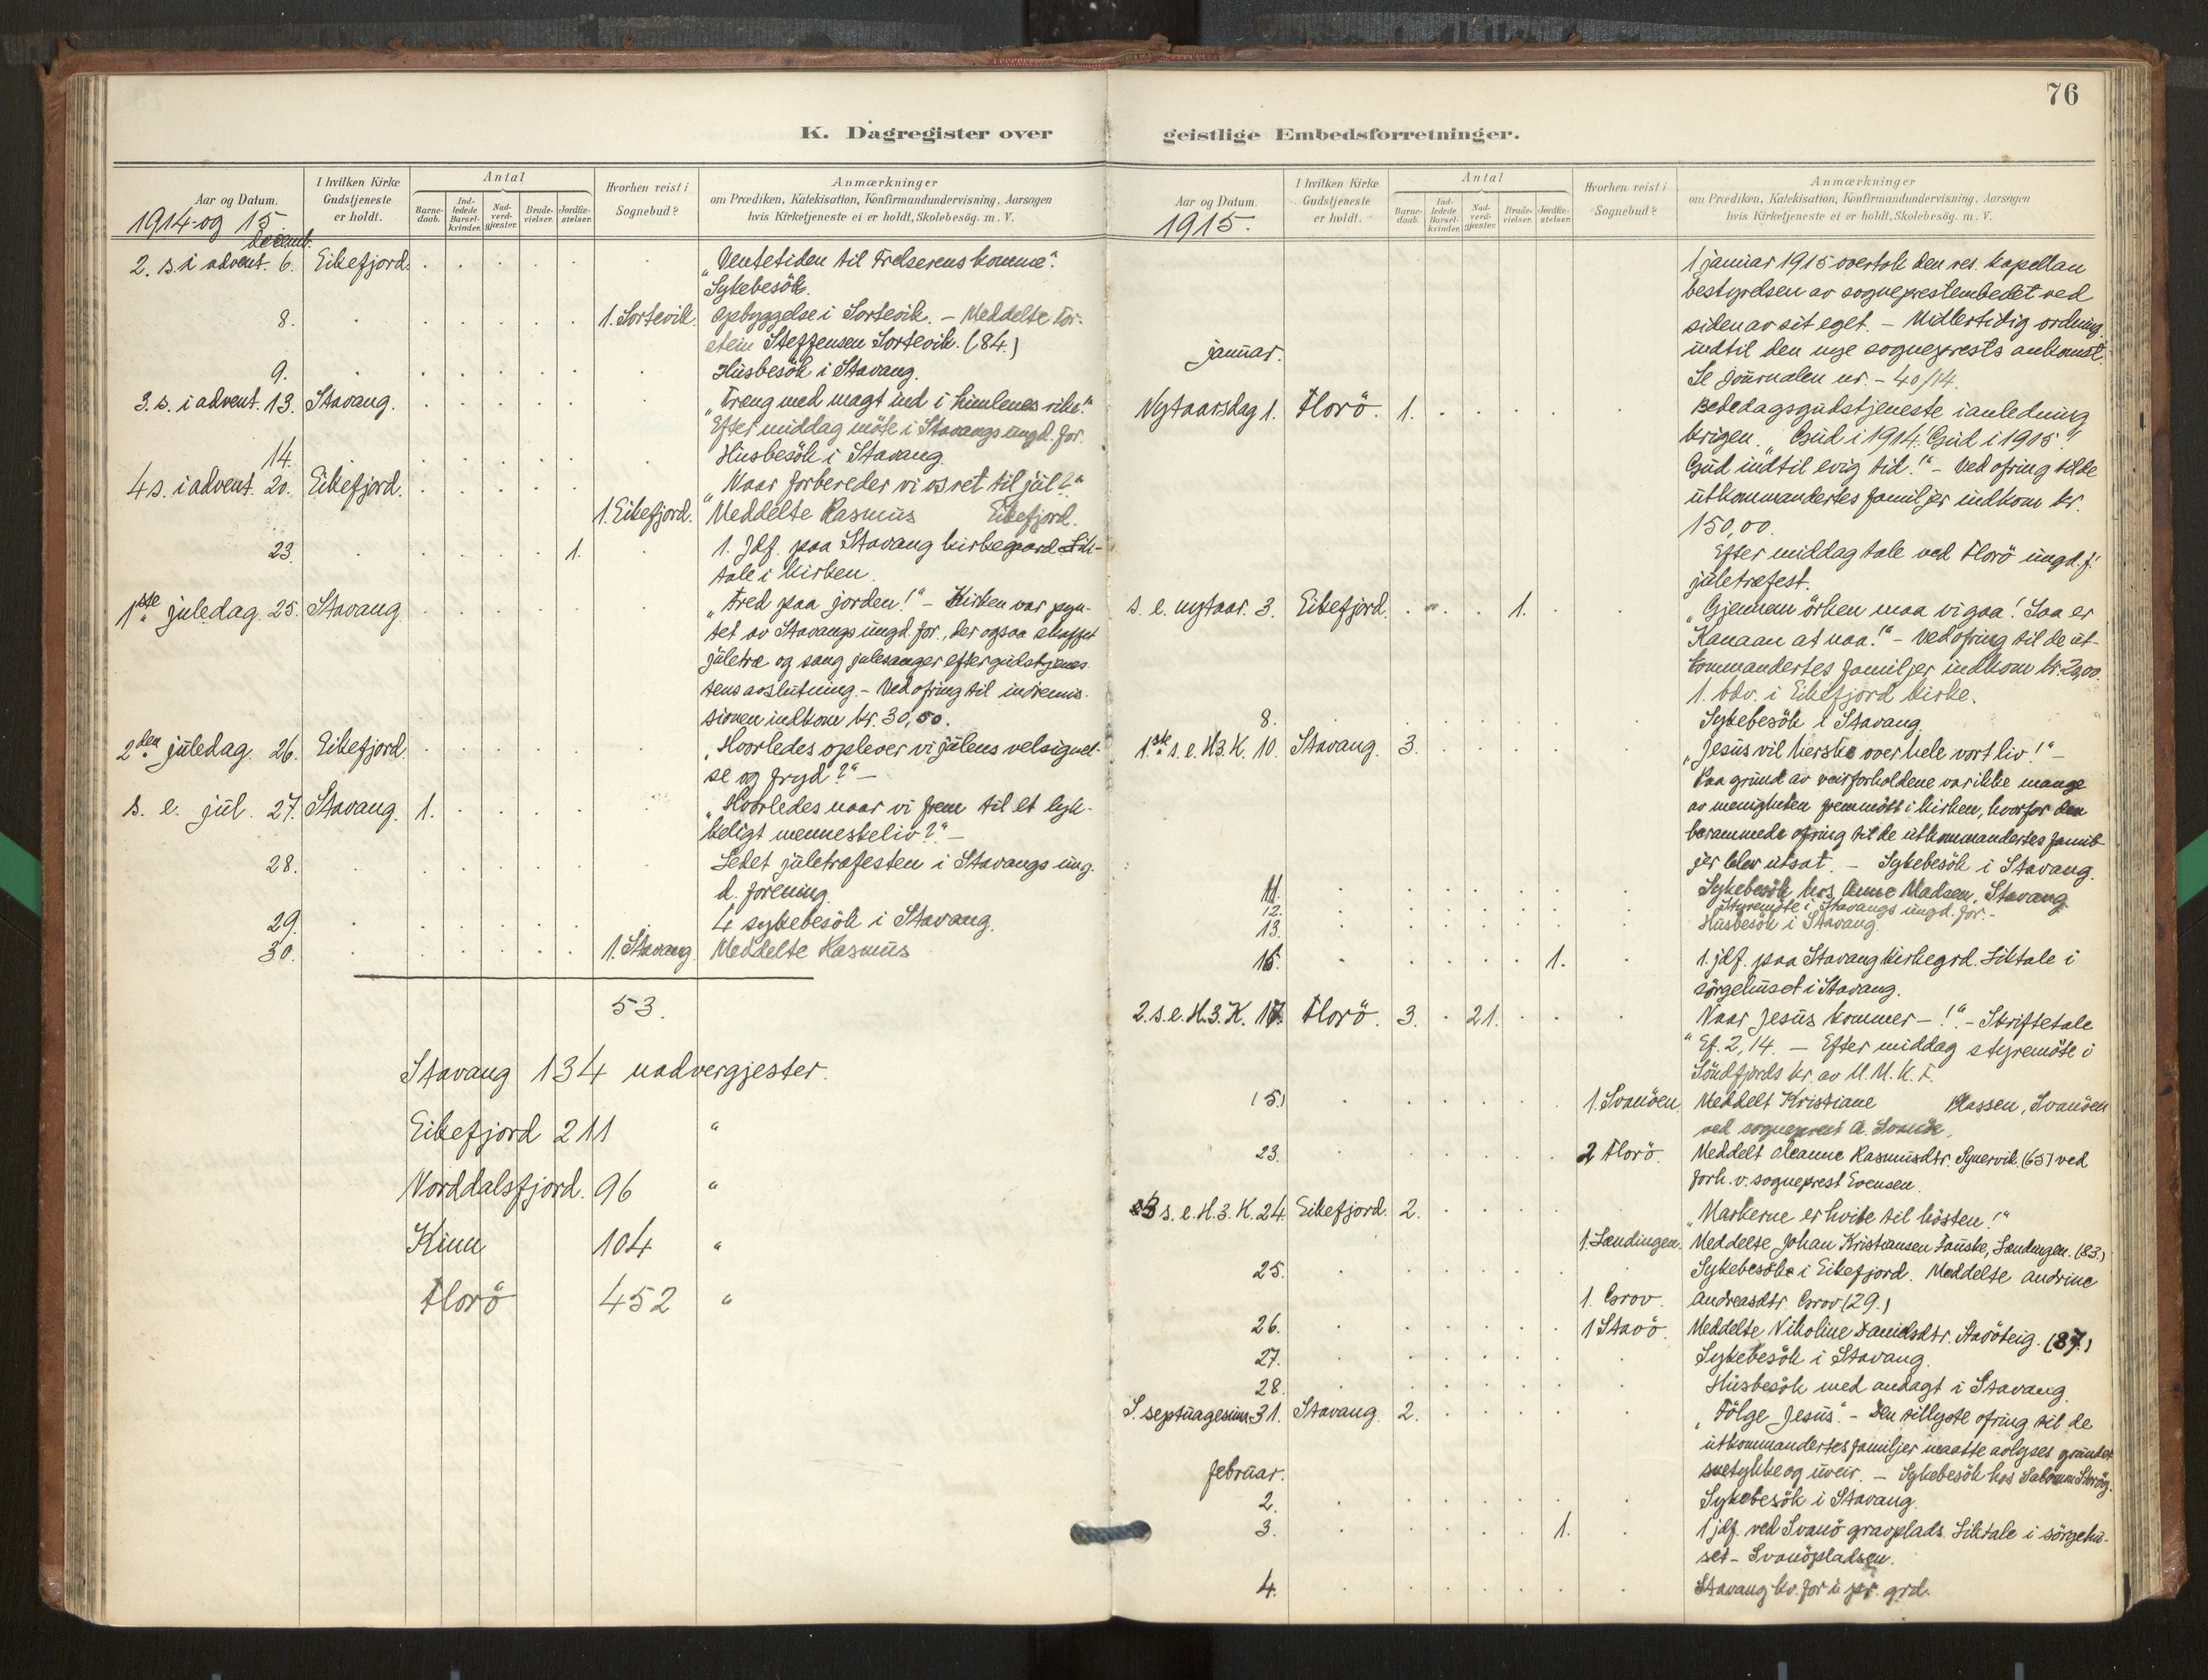 76
K. Dagregister over geistlige Embedsforretninger.
Aar og Datum.
I hvilken Kirke Gudstjeneste er holdt.
Antal
Barnedaab.
Indledede Barselkvinder.
Nadverdgjæster.
Brudevielser.
Jordfæstelser.
Hvorhen reist i Sognebud?
Anmærkninger
om Prædiken, Katekisation, Konfirmandundervisning, Aarsagen
hvis Kirketjeneste ei er holdt, Skolebesög. m. V.
1914 og 15.
decemb.
2. s. i advent. 6. Eikefjord. „Ventetiden til Frelserens komme“.
Sykebesök.
8. 1. Sortevik. Opbyggelse i Sortevik. – Meddelte Tor-
stein Steffensen Sortevik. (84.)
9. Husbesök i Stavang.
3. s. i advent. 13. Stavang. „Træng med magt ind i himlenes rike!“
Efter middag möte i Stavangs ungd. for.
14. Husbesök i Stavang.
4 s. i advent. 20. Eikefjord. „Naar forbereder vi os ret til jul?“
1. Eikefjord. Meddelte Rasmus Eikefjord.
23. 1. 1. Jdf. paa Stavang kirkegaard Lik-
tale i kirken.
1ste juledag. 25. Stavang. „Fred paa jorden!“ – Kirken var pyn-
tet av Stavangs ungd. for., der ogsaa skaffet
juletræ og sang julesanger efter gudstjenes-
tens avslutning. – Ved ofring til indremis-
sionen indkom kr. 30,50.
2den juledag. 26. Eikefjord. „Hvorledes oplever vi julens velsignel-
se og fryd?“ –
s. e. jul. 27. Stavang. 1. „Hvorledes naar vi frem til et lyk-
keligt menneskeliv?“ –
28. Ledet juletræfesten i Stavangs ung-
d. forening.
29. 4 sykebesök i Stavang.
30. 1. Stavang. Meddelte Rasmus
53.
Stavang 134 nadvergjester.
Eikefjord 211 „
Norddalsfjord. 96 „
Kinn 104 „
Florö 452 „
Aar og Datum.
I hvilken Kirke Gudstjeneste er holdt.
Antal
Barnedaab.
Indledede Barselkvinder.
Nadverdgjæster.
Brudevielser.
Jordfæstelser.
Hvorhen reist i Sognebud?
Anmærkninger
om Prædiken, Katekisation, Konfirmandundervisning, Aarsagen
hvis Kirketjeneste ei er holdt, Skolebesög. m. V.
1915.
1 januar 1915 overtok den res. kapellan
bestyrelsen av sogneprestembedet ved
siden av sit eget. – Midlertidig ordning
januar. indtil den nye sogneprests ankomst.
Se journalen nr. – 40/14.
Nytaarsdag 1. Florö. 1. Bededagsgudstjeneste i anledning
krigen. „Gud i 1914. Gud i 1915“
Gud indtil evig tid!“ – Ved ofring til de
utkommandertes familjer indkom kr.
150,00.
Efter middag tale ved Florö ungd. f.
juletræfest.
s. e. nytaar. 3. Eikefjord. 1. „Gjennem örken maa vi gaa! Saa er
Kanaan at naa!“ – Ved ofring til de ut-
kommandertes familjer indkom kr. 29,00.
1. bdv. i Eikefjord kirke.
8. Sykebesök i Stavang.
1ste s. e. H. 3. K. 10. Stavang. 3. „Jesus vil herske over hele vort liv!“ –
Paa grund av veirforholdene var ikke mange
av menigheten fremmött i kirken, hvorfor den
berammede ofring til de utkommandertes famil-
jer blev utsat. – Sykebesök i Stavang.
11. Sykebesök hos Anne Madsen, Stavang
12. Styremöte i Stavangs ungd. for. –
13. Husbesök i Stavang.
16. 1. 1. jdf. paa Stavang kirkegrd. Liktale i
sörgehuset i Stavang.
2. s. e. H. 3. K. 17. Florö. 3. 21. „Naar Jesus kommer – !“ – Skriftetale
Ef. 2, 14. – Efter middag styremöte i
Söndfjords kr. av U. M. K. F.
(5.) 1. Svanöen. Meddelt Kristiane Klassen, Svanöen
ved sogneprest A.
23. 2 Florö. Meddelt Oleanne Rasmusdtr. (65) ved
forh. v. sogneprest Evensen.
3 s. e. H. 3. K. 24. Eikefjord. 2. „Markerne er hvite til hösten!“
1. Lændingen. Meddelte Johan Kristiansen Fauske, Lændingen. (83.)
25. Sykebesök i Eikefjord. Meddelte Andrine
1. Grov. Andreasdtr. Grov (29.)
26. 1 Stavö. Meddelte Nikoline Danielsdtr. Stavöteig. (87.)
27. Sykebesök i Stavang.
28. Husbesök med andagt i Stavang.
S. septuagesima 31. Stavang. 2. „Fölge Jesus“. – Den tillyste ofring til de
utkommandertes familjer maatte avlyses grundet
februar. snetykke og uveir. – Sykebesök hos
2. Sykebesök i Stavang.
3. 1. 1 jdf. ved Svanö gravplads. Liktale i sörgehu-
set – Svanöpladsen.
4. Stavang kv. for